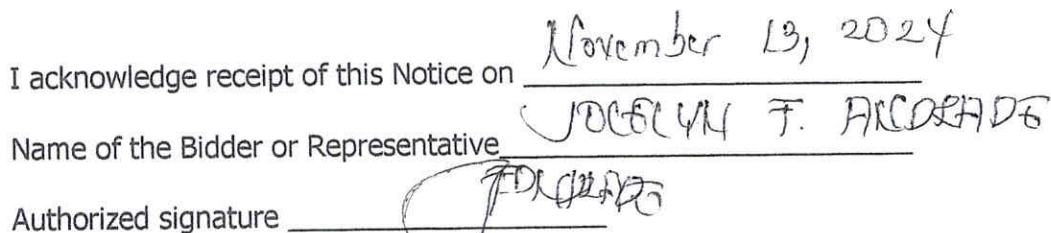 I acknowledge receipt of this Notice on November 13, 2024
Name of the Bidder or Representative JOCELYN F. ANDRADE
Authorized signature